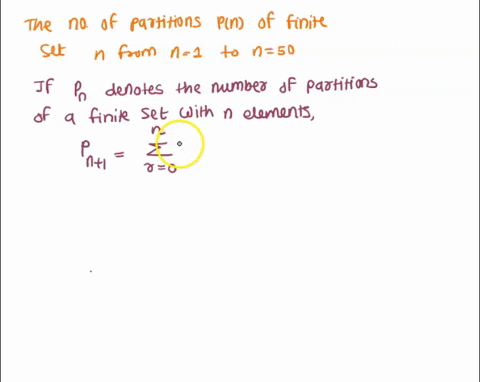 The no. of partitions P(n) of finite
set n from n=1 to n=50
If Pn denotes the number of partitions
of a finite set with n elements,
P_{n+1} = \sum_{r=0}^{n}